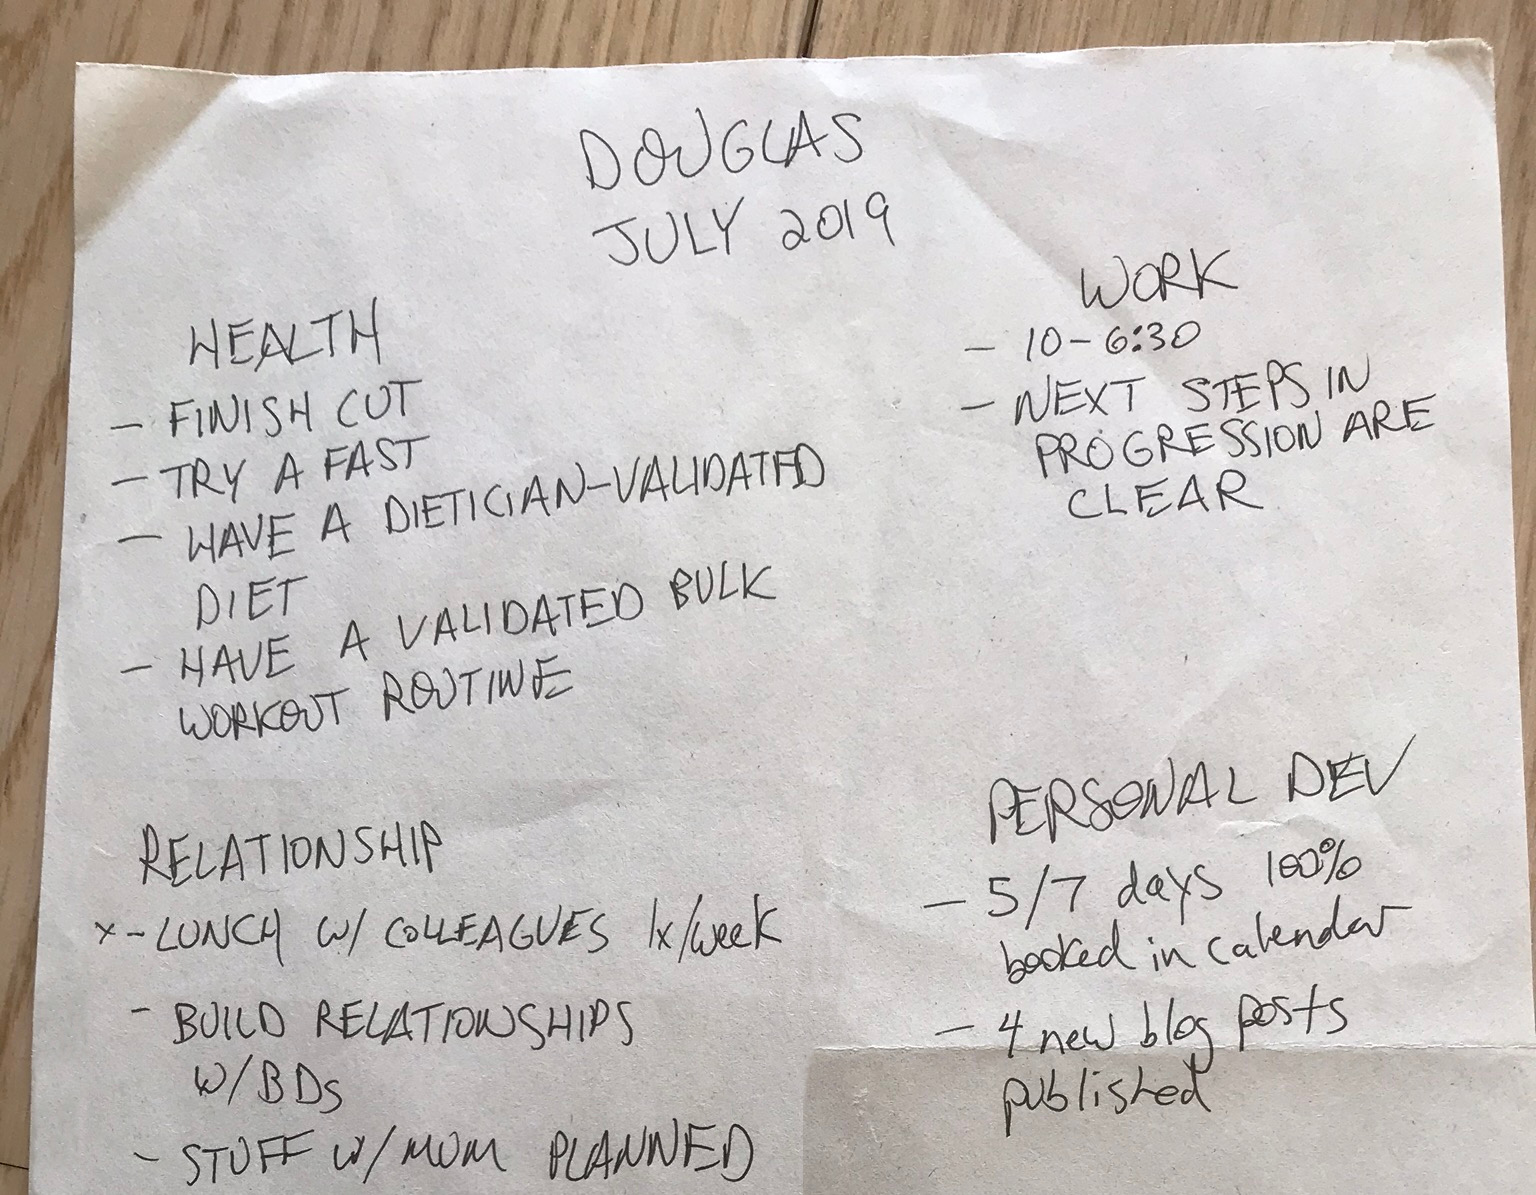 DOUGLAS
JULY 2019
HEALTH
- FINISH CUT
- TRY A FAST
- HAVE A DIETICIAN-VALIDATED
DIET
- HAVE A VALIDATED BULK
WORKOUT ROUTINE
WORK
- 10-6:30
- NEXT STEPS IN
PROGRESSION ARE
CLEAR
RELATIONSHIP
x - LUNCH W/ COLLEAGUES 1x/week
- BUILD RELATIONSHIPS
W/BDs
- STUFF W/MOM PLANNED
PERSONAL DEV
- 5/7 days 100%
booked in calendar
- 4 new blog posts
published